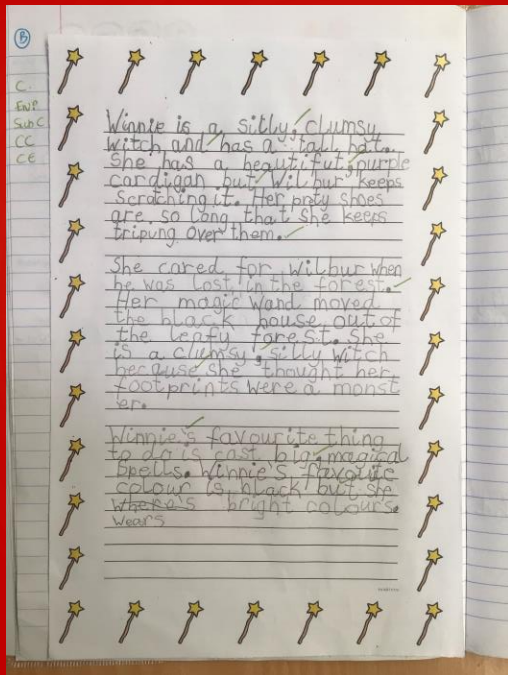 B
C.
ENP
SubC
CC
CE
Winnie is a silly, clumsy
witch and has a tall hat.
She has a beautiful, purple
cardigan but Wilbur keeps
Scratching it. Her pnty shoes
are so long that she keeps
triping over them.
She cared for Wilbur when
he was lost in the forest.
Her magic wand moved
the black house out of
the leafy forest. She
is a clumsy, silly witch
because she thought her
footprints were a monst
er.
Winnie's favourite thing
to do is cast big, magical
Spells. Winnie's favouite
colour is black but she
where's bright colours.
wears